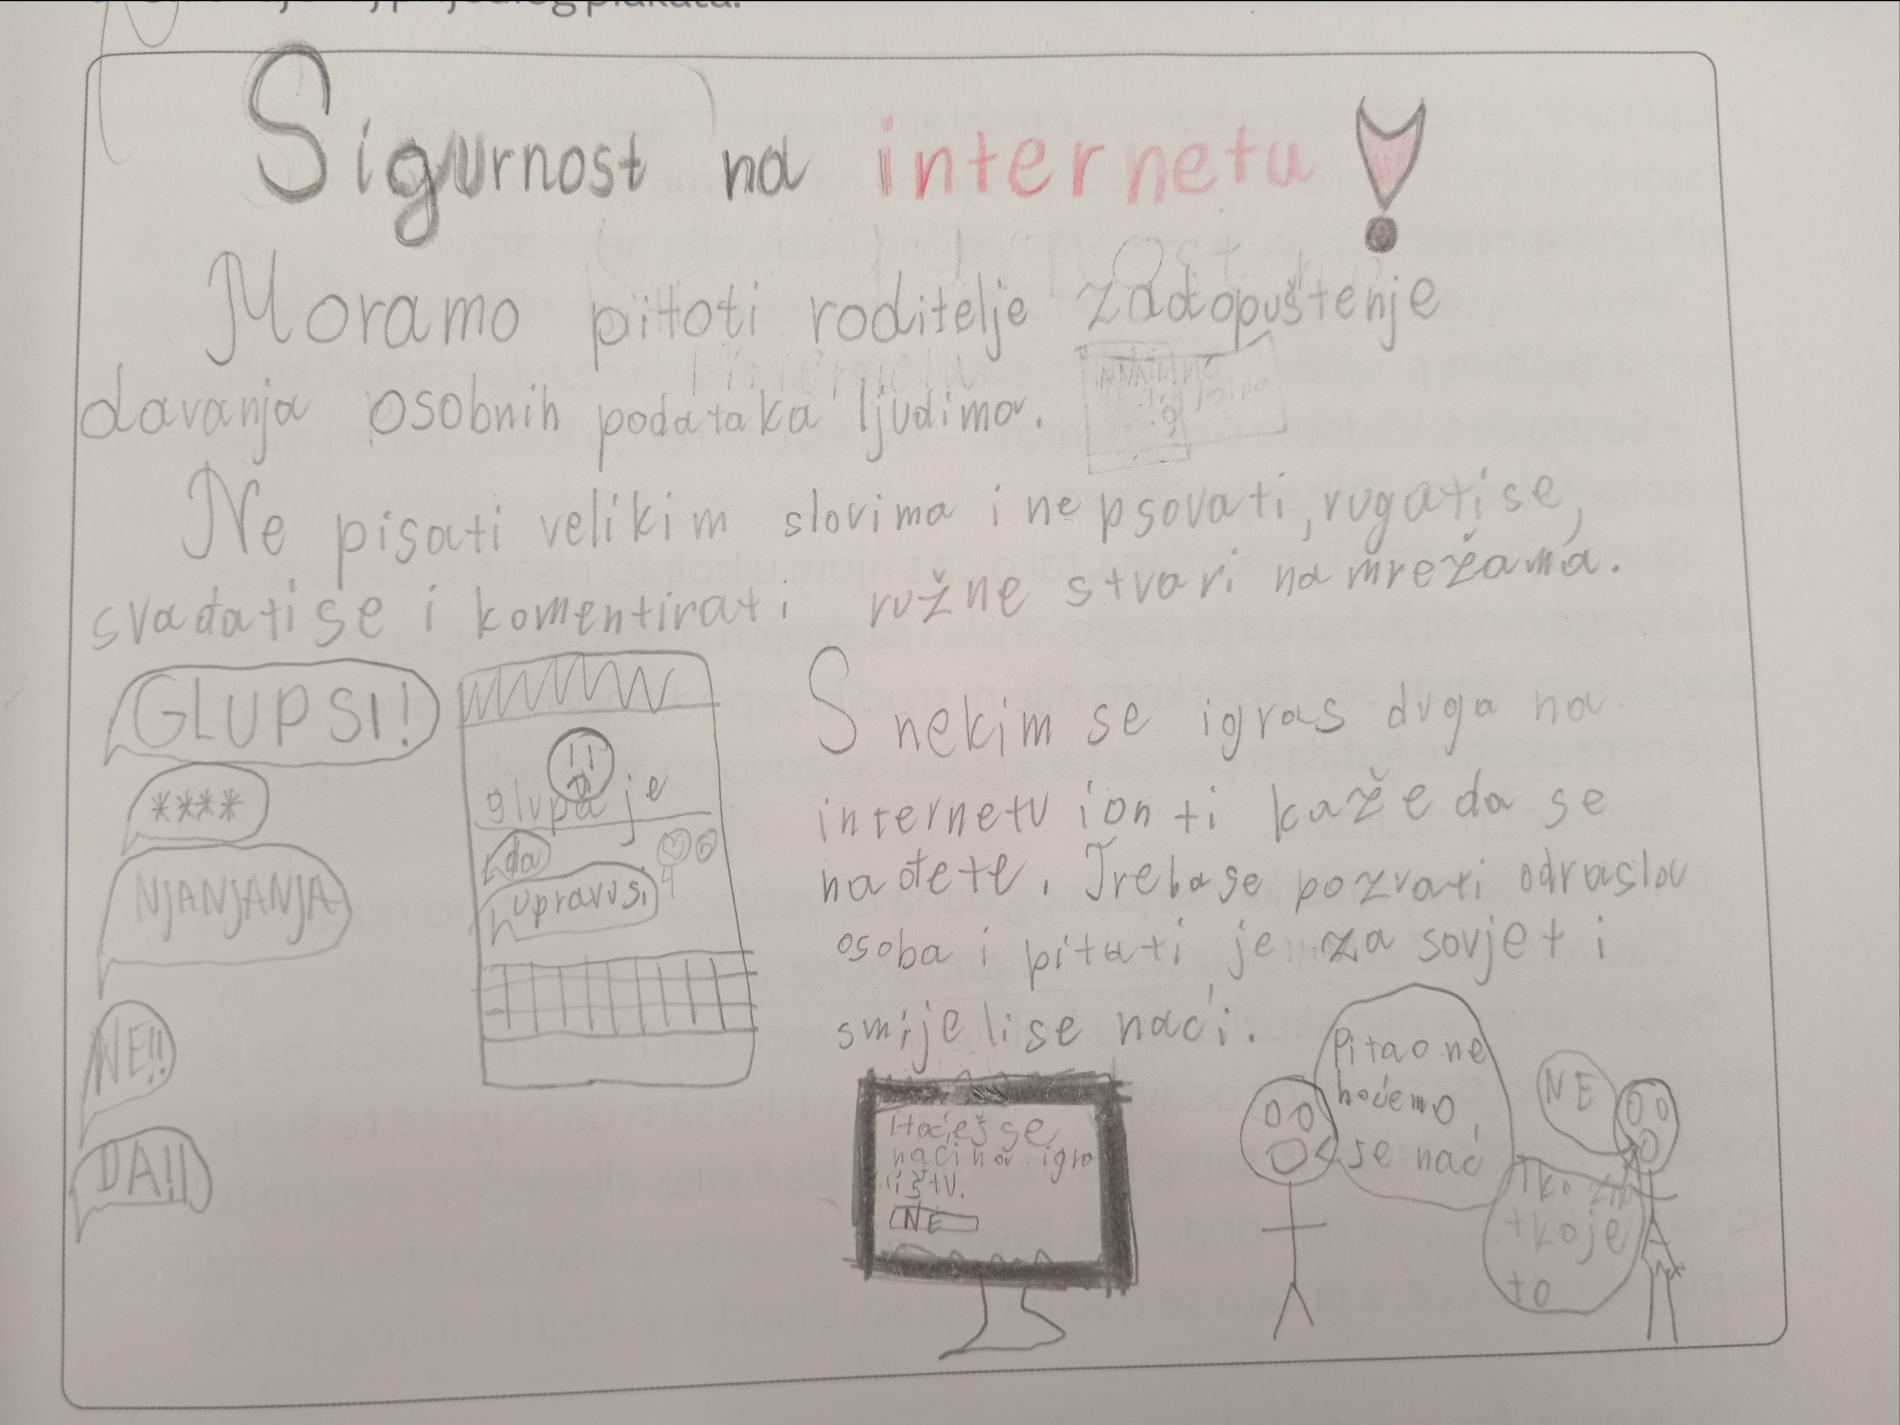 prijedlog plakata.
Sigurnost na internetu!
Moramo pitoti roditelje za dopuštenje
davanja osobnih podataka ljudima.
Ne pisati velikim slovima i ne psovati, rugati se,
svađati se i komentirati ružne stvari na mrežama.
GLUP SI!
****
NJANJANJA
NE!!
DA!!
glupa je
da
4
upravu si
S nekim se igras duga na
internetu i on ti kaže da se
nađete. Treba se pozvati odraslu
osoba i pitati je za sovjet i
smije li se naći.
Hoćeš se
naći na igra
lištu.
NE
Pitao ne
hoćemo
se nać
NE
tko je
to